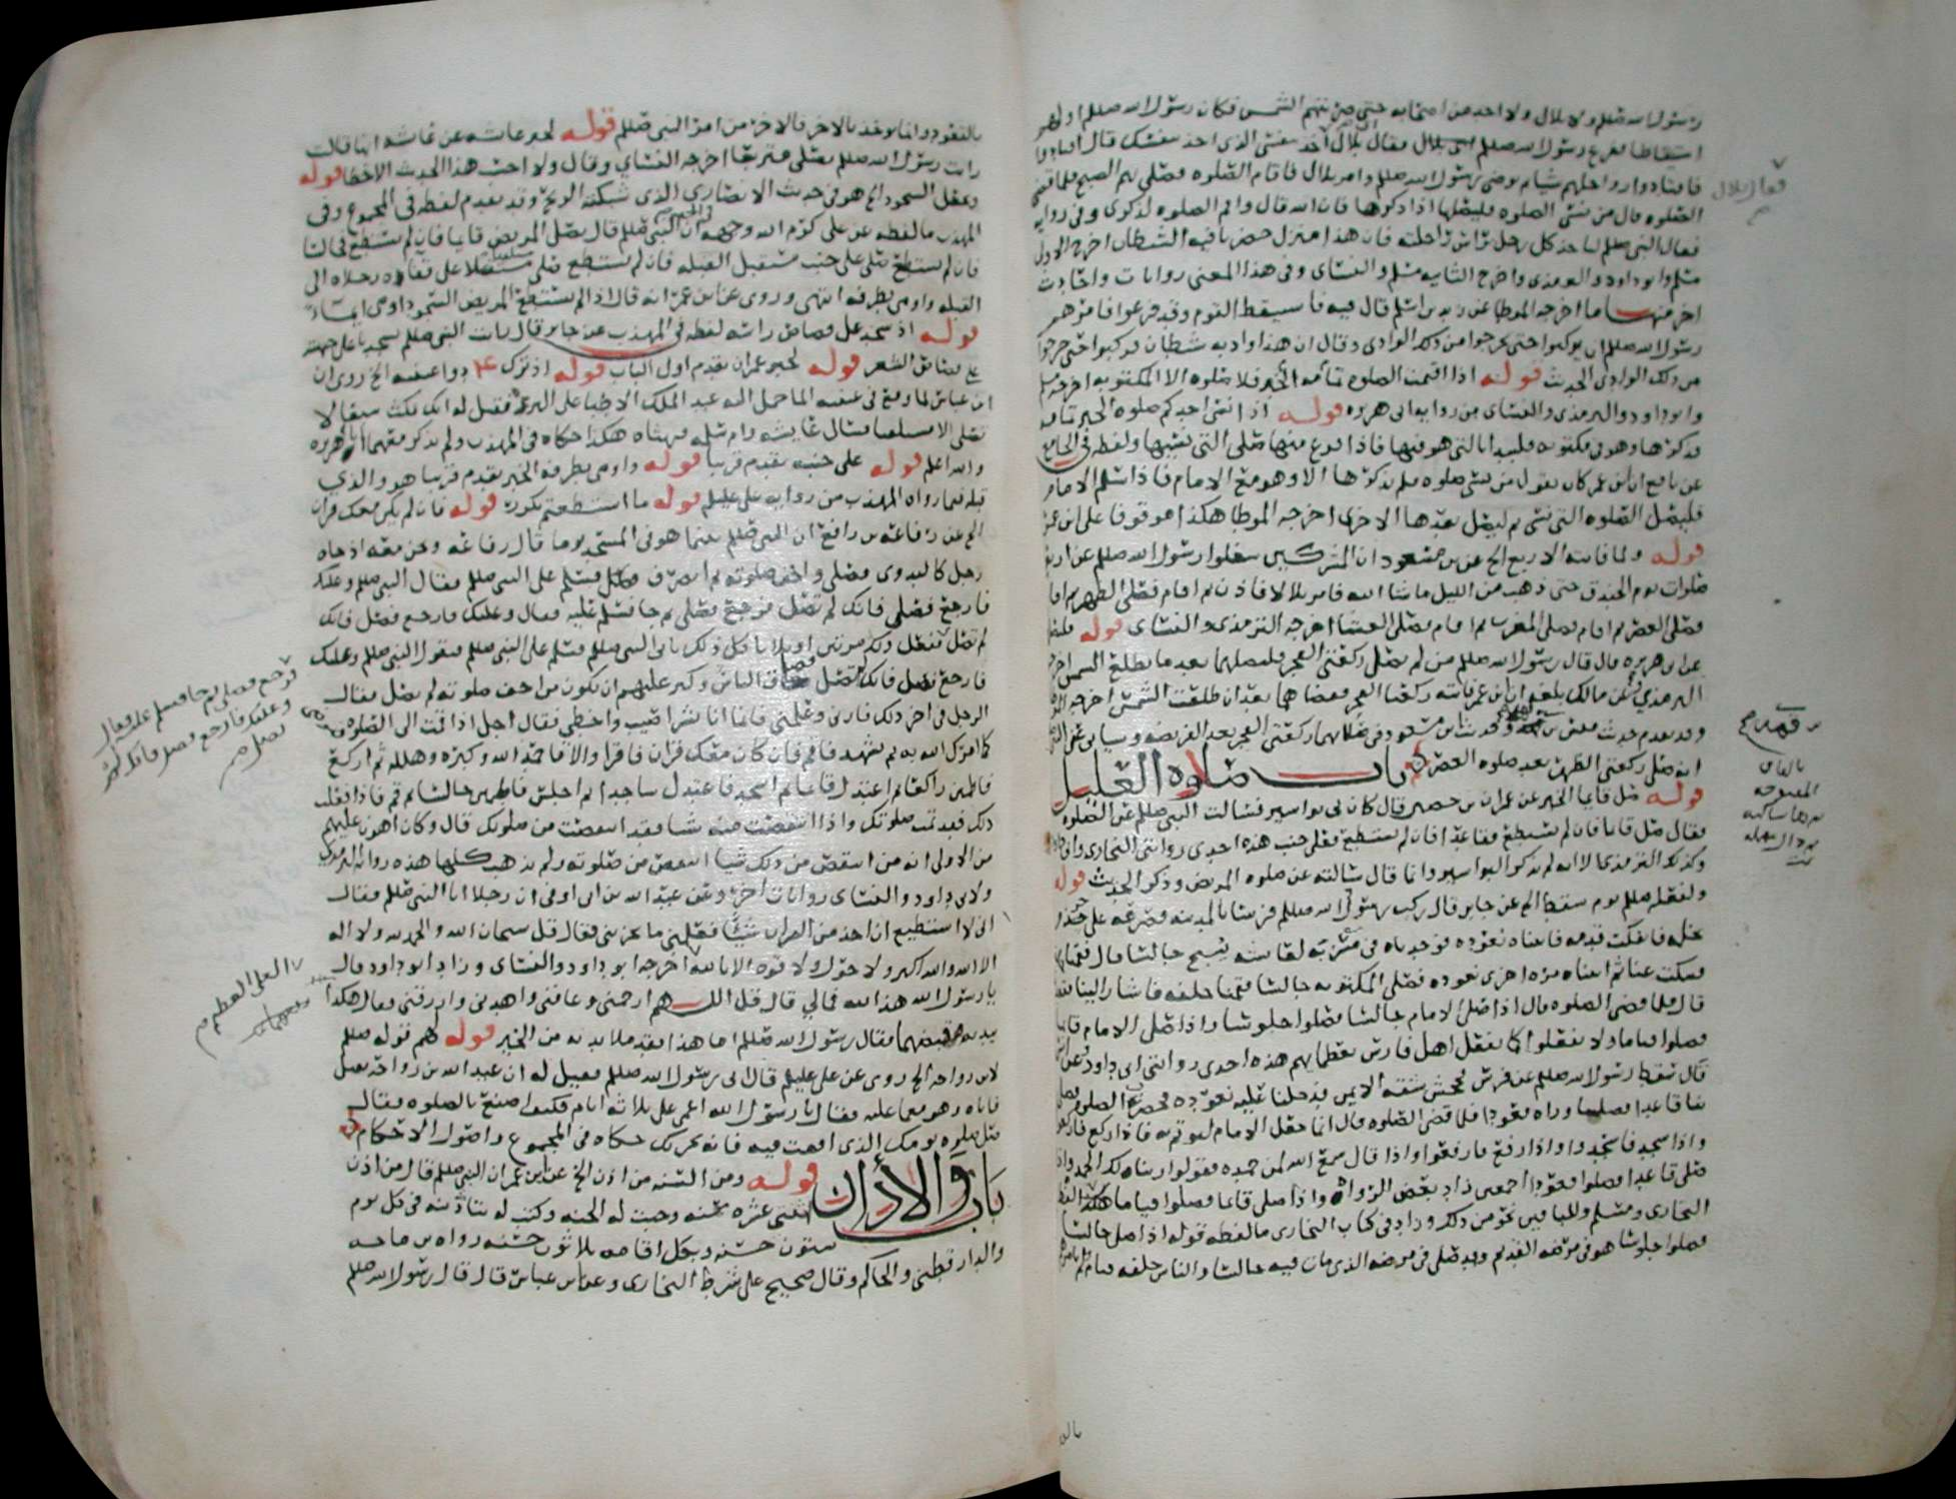 رسول الله صللم ولا بلال ولا احد من اصحابه حتى ضربتهم الشمس فكان رسول الله صللم اولهم
استيقاظا ففزع رسول الله صللم فقال بلال اخذ بنفسي الذي اخذ بنفسك قال اقتادوا
فاقتادوا رواحلهم شيا ثم توضى رسول الله صللم وامر بلال فاقام الصلوه فصلى بهم الصبح فلما قضى
الصلوه قال من نسي الصلوه فليصلها اذا ذكرها فان الله قال واقم الصلوه لذكري وفي روايه
فقال النبي صللم لياخذ كل رجل براس راحلته فان هذا منزل حضرنا فيه الشيطان اخرج الاولى
مسلم وابو داود والترمذي واخرج الثانيه مسلم والنسائي وفي هذا المعنى روايات واحاديث
اخر منها ما اخرجه الموطا عن زيد بن اسلم قال فيه فاستيقظ القوم وقد فزعوا فامرهم
رسول الله صللم ان يركبوا حتى يخرجوا من ذلك الوادي وقال ان هذا واد به شيطان فركبوا حتى خرجوا
من ذلك الوادي الحديث قوله اذا اقيمت الصلوه تمامه الخبر فلا صلوه الا المكتوبه اخرجه مسلم
وابو داود والترمذي والنسائي من روايه ابي هريره قوله اذا نسي احدكم صلوه الخبر تمامه
فذكرها وهو في مكتوبه فليبدا بالتي هو فيها فاذا فرغ منها صلى التي نسيها ولفظه في الجامع
عن نافع ان ابن عمر كان يقول من نسي صلوه فلم يذكرها الا وهو مع الامام فاذا سلم الامام
فليصل الصلوه التي نسي ثم ليصل بعدها الاخرى اخرجه الموطا هكذا موقوفا على ابن عمر
قوله ولما فاتته الاربع الخ عن بن مسعود ان المشركين شغلوا رسول الله صللم عن اربع
صلوات يوم الخندق حتى ذهب من الليل ما شا الله فامر بلالا فاذن ثم اقام فصلى الظهر ثم اقام
فصلى العصر ثم اقام فصلى المغرب ثم اقام فصلى العشا اخرجه الترمذي والنسائي قوله
عن ابي هريره قال قال رسول الله صللم من لم يصل ركعتي الفجر فليصلهما بعد ما تطلع الشمس اخرجه
الترمذي وعن مالك بلغه ان ابن عمر فاتته ركعتا الفجر فقضاهما بعد ان طلعت الشمس اخرجه
انه صلى ركعتي الظهر بعد صلوه العصر
باب صلوه العليل
قوله صل قايما الخبر عن عمران بن حصين قال كان لي بواسير فسالت النبي صللم عن الصلوه
فقال صل قايما فان لم تستطع فقاعدا فان لم تستطع فعلى جنب هذه احدى روايتي البخاري وابي داود
وكذلك الترمذي الا انه لم يذكر البواسير وانما قال سالته عن صلوه المريض وذكر الحديث قوله
ولفعله صللم يوم سقط الخ عن جابر قال ركب رسول الله صللم فرسا بالمدينه فصرعه على جذم
نخله فانفكت قدمه فاتيناه نعوده فوجدناه في مشربه لعايشه يسبح جالسا قال فقمنا
فسكت عنا ثم اتيناه مره اخرى نعوده فصلى المكتوبه جالسا فقمنا خلفه فاشار الينا فقعدنا
قال فلما قضى الصلوه قال اذا صلى الامام جالسا فصلوا جلوسا واذا صلى الامام قايما
فصلوا قياما ولا تفعلوا كما يفعل اهل فارس بعظمايهم هذه احدى روايتي ابي داود وعن انس
قال سقط رسول الله صللم عن فرس فجحش شقه الايمن فدخلنا عليه نعوده فحضرت الصلوه فصلى
بنا قاعدا فصلينا وراه قعودا فلما قضى الصلوه قال انما جعل الامام ليوتم به فاذا ركع فاركعوا
واذا سجد فاسجدوا واذا رفع فارفعوا واذا قال سمع الله لمن حمده فقولوا ربنا لك الحمد واذا
صلى قاعدا فصلوا قعودا اجمعين زاد بعض الرواه واذا صلى قايما فصلوا قياما هكذا لفظ
البخاري ومسلم وللباقين نحو من ذلك وزاد في كتاب البخاري ما لفظه قوله اذا صلى جالسا
فصلوا جلوسا هو في مرضه القديم وقد صلى في مرضه الذي مات فيه جالسا والناس خلفه قيام لم يامرهم
فقال بلال
بالقاف
المفتوحه
ودال مهمله
بالقعود وانما يوخذ بالاخر فالاخر من امر النبي صللم قوله لخبر عايشه عن عايشه انها قالت
رايت رسول الله صللم يصلي متربعا اخرجه النسائي وقال ولا احسب هذا الحديث الا خطا قوله
وعقل السجود الخ هو في حديث الانصاري الذي شبكته الريح وقد تقدم لفظه في المجموع وفي
المهذب ما لفظه عن علي كرم الله وجهه في الجنه ان النبي صللم قال يصل المريض قايما فان لم يستطع فجالسا
فان لم يستطع صلى على جنب مستقبل القبله فان لم يستطع صلى مستلقيا على قفاه ورجلاه الى
القبله واومى بطرفه انتهى وروى عن ابن عمر انه قال اذا لم يستطع المريض السجود اومى ايماء
قوله اذ سجد على قصاص راسه لفظه في المهذب عن جابر قال رايت النبي صللم سجد باعلى جبهته
على قصاص الشعر قوله لخبر عمران تقدم اول الباب قوله اذ ترك ع دوا عينيه الخ روي ان
ابن عباس لما وقع في عينيه الما حمل اليه عبد الملك الاطبا على البرد فقيل له انك تمكث سبعا لا
تصلي الا مستلقيا فسال عايشه وام سلمه فنهتاه هكذا حكاه في المهذب ولم يذكر معهما ابا هريره
والله اعلم قوله على جنبه تقدم قريبا قوله واومى بطرفه الخبر تقدم قريبا هو والذي
قبله فيما رواه المهذب من روايه علي عليلم قوله ما استطعتم تكرر قوله فان لم يكن معك قران
الخ عن رفاعه بن رافع ان النبي صللم بينما هو في المسجد يوما قال رفاعه ونحن معه اذ جاه
رجل كالبدوي فصلى واخف صلوته ثم انصرف فسلم على النبي صللم فقال النبي صللم وعليك
فارجع فصلي فانك لم تصل فرجع فصلى ثم جا فسلم عليه فقال وعليك فارجع فصل فانك
لم تصل ففعل ذلك مرتين او ثلاثا كل ذلك ياتي النبي صللم فيسلم على النبي صللم فيقول النبي صللم وعليك
فارجع فصل فانك لم تصل فخاف الناس وكبر عليهم ان يكون من اخف صلوته لم يصل فقال
الرجل في اخر ذلك فارني وعلمني فانما انا بشر اصيب واخطي فقال اجل اذا قمت الى الصلوه فتوضى
كما امرك الله به ثم تشهد فاقم فان كان معك قران فاقرا والا فاحمد الله وكبره وهلله ثم اركع
فاطمين راكعا ثم اعتدل قايما ثم اسجد فاعتدل ساجدا ثم اجلس فاطمين جالسا ثم قم فاذا فعلت
ذلك فقد تمت صلوتك واذا انتقصت منه شيا فقد انتقصت من صلوتك قال وكان اهون عليهم
من الاولى انه من انتقص من ذلك شيا انتقص من صلوته ولم تذهب كلها هذه روايه الترمذي
ولابي داود والنسائي روايات اخر وعن عبد الله بن ابي اوفى ان رجلا اتا النبي صللم فقال
اني لا استطيع ان اخذ من القران شيئا فعلمني ما يجزيني فقال قل سبحان الله والحمد لله ولا اله
الا الله والله اكبر ولا حول ولا قوه الا بالله اخرجه ابو داود والنسائي وزاد ابو داود قال
يا رسول الله هذا لله فمالي قال قل اللهم ارحمني وعافني واهدني وارزقني فقال هكذا
بيديه وقبضهما فقال رسول الله صللم اما هذا فقد ملا يديه من الخير قوله قوله صللم
لابن رواحه الخ روي عن علي عليلم قال اتى رسول الله صللم فقيل له ان عبد الله بن رواحه ثقيل
فاتاه وهو مغما عليه فقال يا رسول الله اغمي علي ثلاثه ايام فكيف اصنع بالصلوه فقال
صل صلوه يومك الذي افقت فيه فانه يجزيك حكاه في المجموع واصول الاحكام
باب والاذان
قوله ومن السنه من اذن الخ عن ابن عمر ان النبي صللم قال من اذن
اثنتي عشره سنه وجبت له الجنه وكتب له بتاذينه في كل يوم
ستون حسنه وبكل اقامه ثلاثون حسنه رواه بن ماجه
والدارقطني والحاكم وقال صحيح على شرط البخاري وعن ابن عباس قال قال رسول الله صللم
فرجع فصلى ثم جا فسلم عليه فقال
وعليك فارجع فصل فانك لم
تصل
العلي العظيم